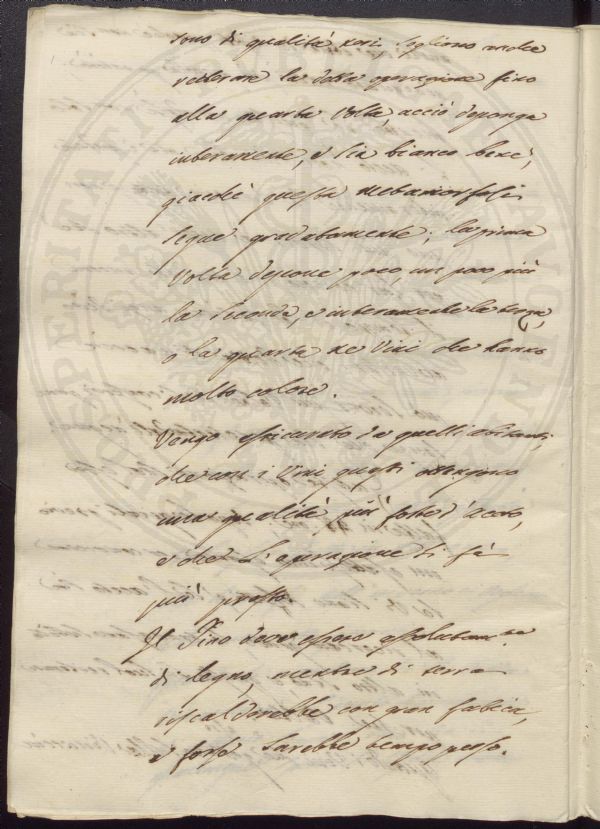 sono di qualità neri, sogliono anche
reiterare la detta operazione fino
alla quarta volta, acciò deponga
interamente, e sia bianco bene,
giacchè questa metamorfosi
segue gradatamente; la prima
volta depone poco, un poco più
la seconda, e interamente la terza,
o la quarta ne Vini che hanno
molto colore.
Vengo assicurato da quelli abitanti,
che con i Vini guasti ottengono
una qualità più forte d'aceto,
e che l'operazione si fà
più presto.
Il Tino deve essere assolutam.te
di legno, mentre di terra
riscalderebbe con gran fatica,
e forse sarebbe tempo perso.